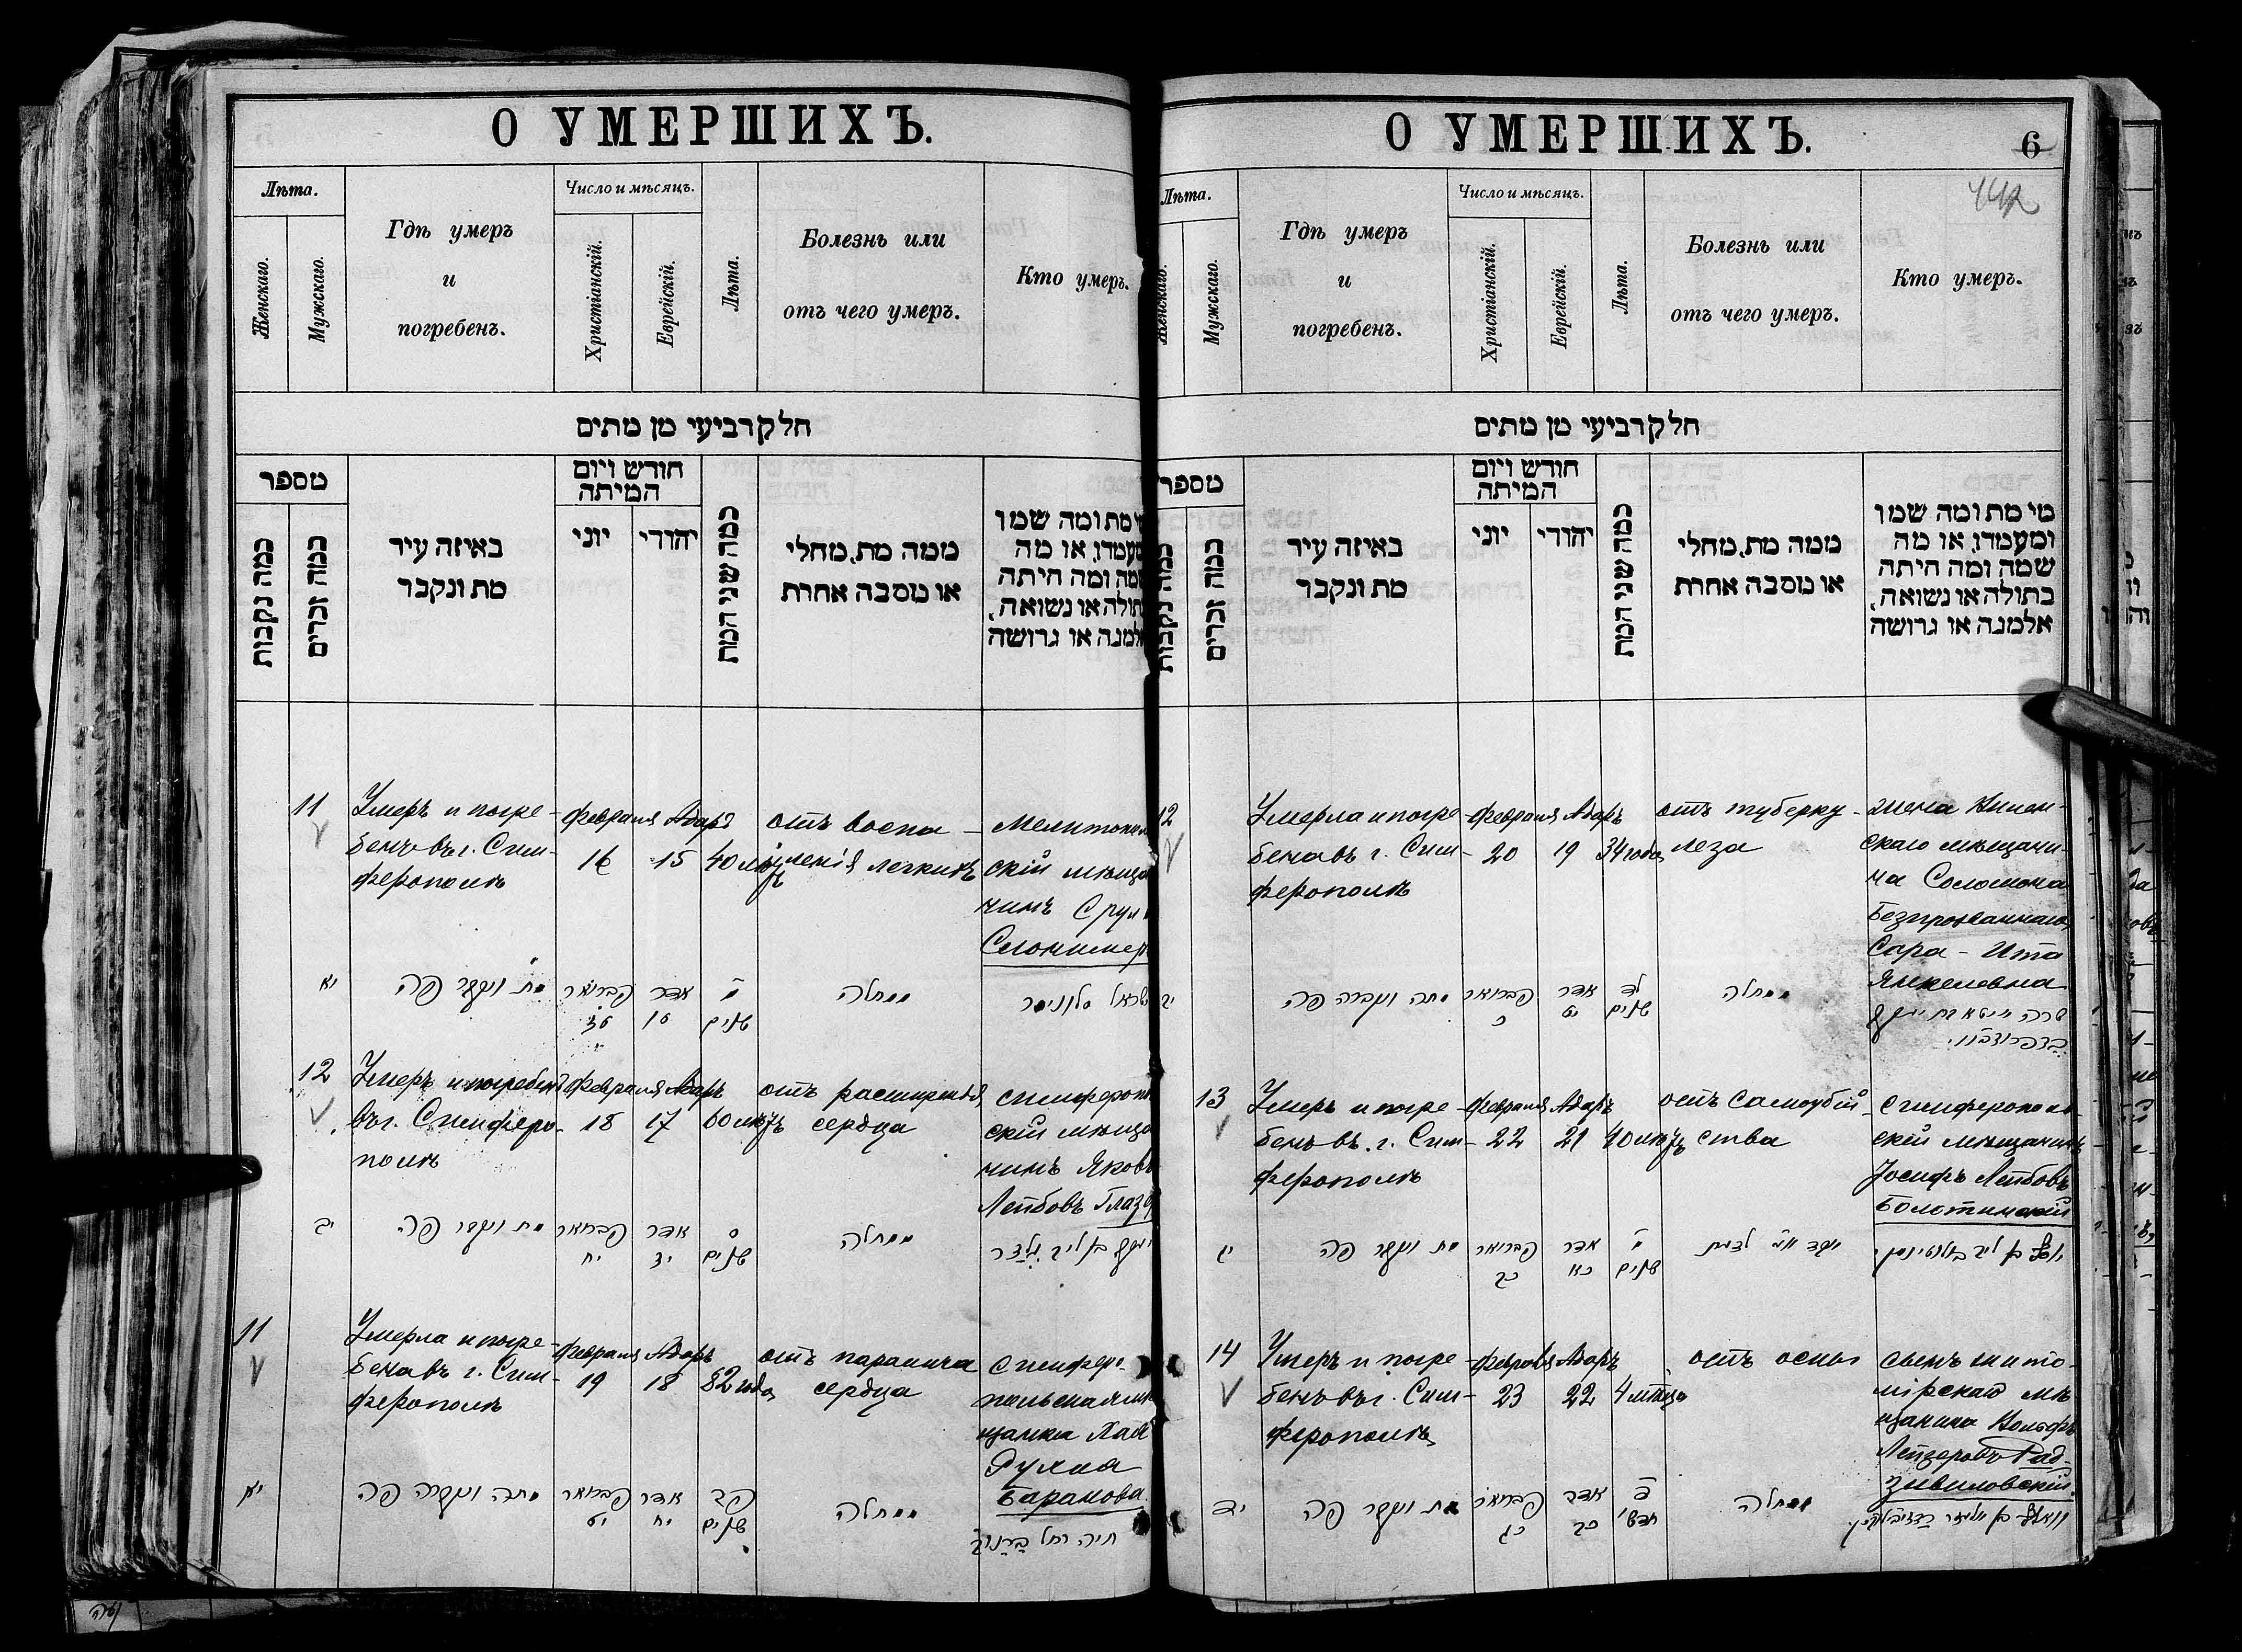 О УМЕРШИХЪ.
Лѣта.
Женскаго.
Мужскаго.
Гдѣ умеръ
и
погребенъ.
Число и мѣсяцъ.
Христіанскій.
Еврейскій.
Лѣта.
Болезнь или
отъ чего умеръ.
Кто умеръ.
חלק רביעי מן מתים
מספר
כמה נקבות
כמה זכרים
באיזה עיר
מת ונקבר
חודש ויום
המיתה
יוני
יהודי
כמה שני המת
ממה מת, מחלי
או מסבה אחרת
מי מת ומה שמו
ומעמדו, או מה
שמה ומה היתה
בתולה או נשואה,
אלמנה או גרושה
11
Умеръ и погре-
бенъ въ г. Сим-
ферополѣ
февраля
16
Адаръ
15
40 лѣтъ
отъ воспа-
ленія легкихъ
Мелитополь
скій мѣща
нинъ Сруль
Слонимер
יא
מת ונקבר פה
פברואר
טז
אדר
טו
מ
שנים
ממחלה
ישראל סלונימר
12
Умеръ и погребенъ
въ г. Симферо-
полѣ
февраля
18
Адаръ
17
60 лѣтъ
отъ расширенія
сердца
симферопол
скій мѣща
нинъ Яковъ
Лейбовъ Глазер
יב
מת ונקבר פה
פברואר
יח
אדר
יז
ס
שנים
ממחלה
יעקב בן ליב גלזר
11
Умерла и погре-
бена въ г. Сим-
ферополѣ
февраля
19
Адаръ
18
82 года
отъ паралича
сердца
симферо-
польская мѣ
щанка Хая
Рухля
Баранова
יא
מתה ונקברה פה
פברואר
יט
אדר
יח
פב
שנים
ממחלה
חיה רחל ברנוב
О УМЕРШИХЪ.
6
Лѣта.
Женскаго.
Мужскаго.
Гдѣ умеръ
и
погребенъ.
Число и мѣсяцъ.
Христіанскій.
Еврейскій.
Лѣта.
Болезнь или
отъ чего умеръ.
Кто умеръ.
חלק רביעי מן מתים
מספר
כמה נקבות
כמה זכרים
באיזה עיר
מת ונקבר
חודש ויום
המיתה
יוני
יהודי
כמה שני המת
ממה מת, מחלי
או מסבה אחרת
מי מת ומה שמו
ומעמדו, או מה
שמה ומה היתה
בתולה או נשואה,
אלמנה או גרושה
12
Умерла и погре-
бена въ г. Сим-
ферополѣ
февраля
20
Адаръ
19
34 года
отъ туберку-
леза
жена
скаго мѣщани-
на Соломона
Безпрозваннаго
Сара-Ита
Янкелевна
יב
מתה ונקברה פה
פברואר
כ
אדר
יט
לד
שנים
ממחלה
שרה איטא בת יעקב
13
Умеръ и погре-
бенъ въ. г. Сим-
ферополѣ
февраля
22
Адаръ
21
40 лѣтъ
отъ самоубій-
ства
симферополь-
скій мѣщанинъ
Іосифъ Лейбовъ
Болотинскій
יג
מת ונקבר פה
פברואר
כב
אדר
כא
מ
שנים
לדעת
יוסף בן ליב בולוטינסקי
14
Умеръ и погре-
бенъ въ г. Сим-
ферополѣ
февраля
23
Адаръ
22
4 мѣсяца
отъ оспы
сынъ жито-
мірскаго мѣ
щанина Вольфъ
Лейзеровъ Рад-
зивиловскій.
יד
מת ונקבר פה
פברואר
כג
אדר
כב
ד
חדשי
ממחלה
וואלף בן אליעזר רדזיבילובסקי